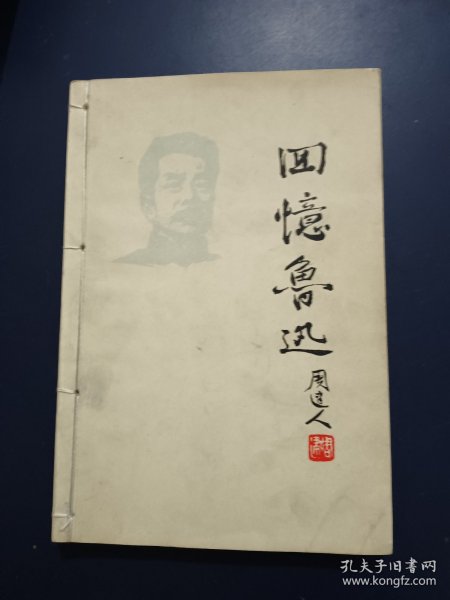 回憶魯迅
周建人
孔夫子旧书网
www.kongfz.com